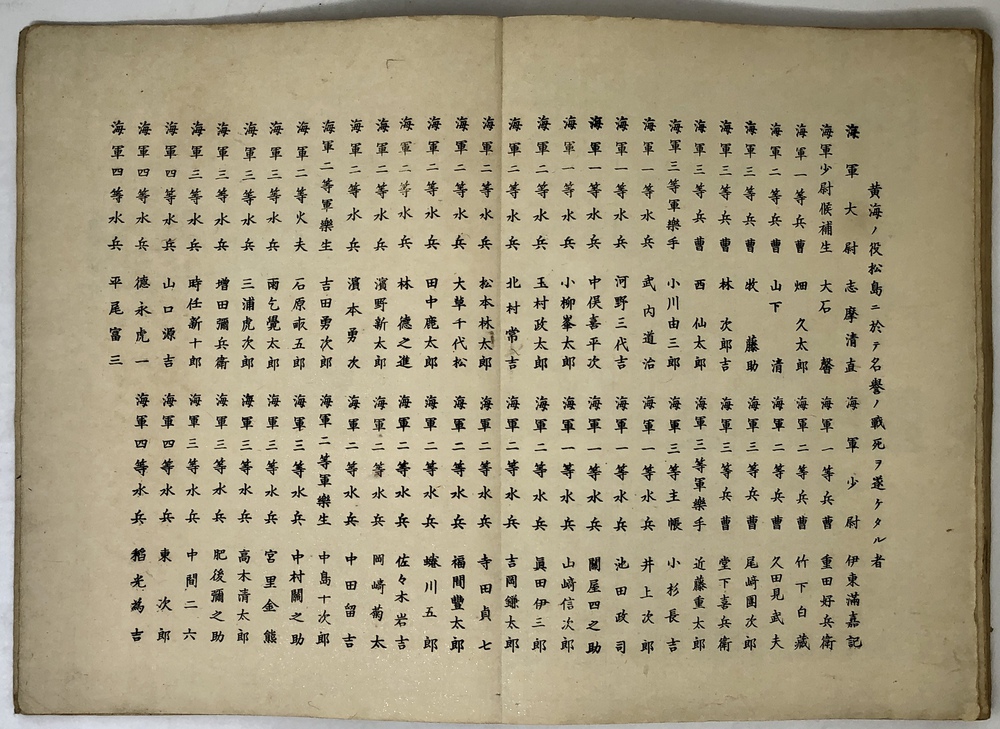 黄海ノ役松島ニ於テ名譽ノ戰死ヲ遂ケタル者
海軍大尉 志摩清直 海軍少尉 伊東滿嘉記
海軍少尉候補生 大石馨 海軍一等兵曹 重田好兵衛
海軍一等兵曹 畑久太郎 海軍二等兵曹 竹下白藏
海軍二等兵曹 山下清 海軍二等兵曹 久田見武夫
海軍三等兵曹 牧藤助 海軍三等兵曹 尾﨑圑次郎
海軍三等兵曹 林次郎吉 海軍三等兵曹 堂下喜兵衛
海軍三等兵曹 西仙太郎 海軍三等軍樂手 近藤重太郎
海軍三等軍樂手 小川由三郎 海軍三等主帳 小杉長吉
海軍一等水兵 武内道治 海軍一等水兵 井上次郎
海軍一等水兵 河野三代吉 海軍一等水兵 池田政司
海軍一等水兵 中俣喜平次 海軍一等水兵 關屋四之助
海軍一等水兵 小柳峯太郎 海軍一等水兵 山﨑信次郎
海軍二等水兵 玉村政太郎 海軍二等水兵 眞田伊三郎
海軍二等水兵 北村常吉 海軍二等水兵 吉岡鎌太郎
海軍二等水兵 松本林太郎 海軍二等水兵 寺田貞七
海軍二等水兵 大草千代松 海軍二等水兵 福間豐太郎
海軍二等水兵 田中鹿太郎 海軍二等水兵 蜷川五郎
海軍二等水兵 林德之進 海軍二等水兵 佐々木岩吉
海軍二等水兵 濱野新太郎 海軍二等水兵 岡﨑菊太
海軍二等水兵 濱本勇次 海軍二等水兵 中田留吉
海軍二等軍樂生 吉田勇次郎 海軍二等軍樂生 中島十次郎
海軍二等火夫 石原五郎 海軍三等水兵 中村關之助
海軍三等水兵 雨乞覺太郎 海軍三等水兵 宮里金熊
海軍三等水兵 三浦虎次郎 海軍三等水兵 高木清太郎
海軍三等水兵 增田彌兵衛 海軍三等水兵 肥後彌之助
海軍三等水兵 時任新十郎 海軍三等水兵 中間二六
海軍四等水兵 山口源吉 海軍四等水兵 東次郎
海軍四等水兵 德永虎一 海軍四等水兵 稻光為吉
海軍四等水兵 平尾富三